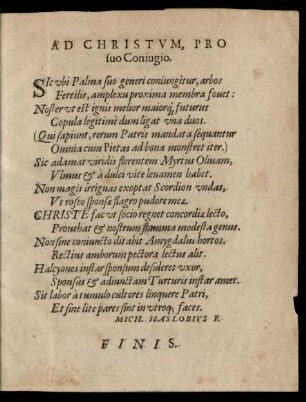 AD CHRISTVM, PRO
suo Coniugio.
SIc vbi Palma suo generi coniungitur, arbos
Fertilis, amplexu proxima membra fouet:
Noster vt est ignis melior maiorq́; futurus
Copula legitimè dum ligat vna duos.
(Qui sapiunt, rerum Patris mandata sequantur
Omnia cum Pietas ad bona monstret iter.)
Sic adamat viridis florentem Myrtus Oliuam,
Vlmus & à dulci vite leuamen habet.
Non magis irriguas exoptat Scordion vndas,
Vt roseo sponsæ flagro pudore meæ.
CHRISTE fac vt socio regnet concordia lecto,
Prouehat & nostrum flamma modesta genus.
Non sine coniuncto ditabit Amygdalus hortos,
Rectius amborum pectora lectus alit.
Halcyones instar sponsum desideret vxor,
Sponsus & adiunctam Turturis instar amet.
Sit labor à tumulo cultores linquere Patri,
Et sine lite pares sint in vtroq; faces.
MICH. HASLOBIVS F.
FINIS.